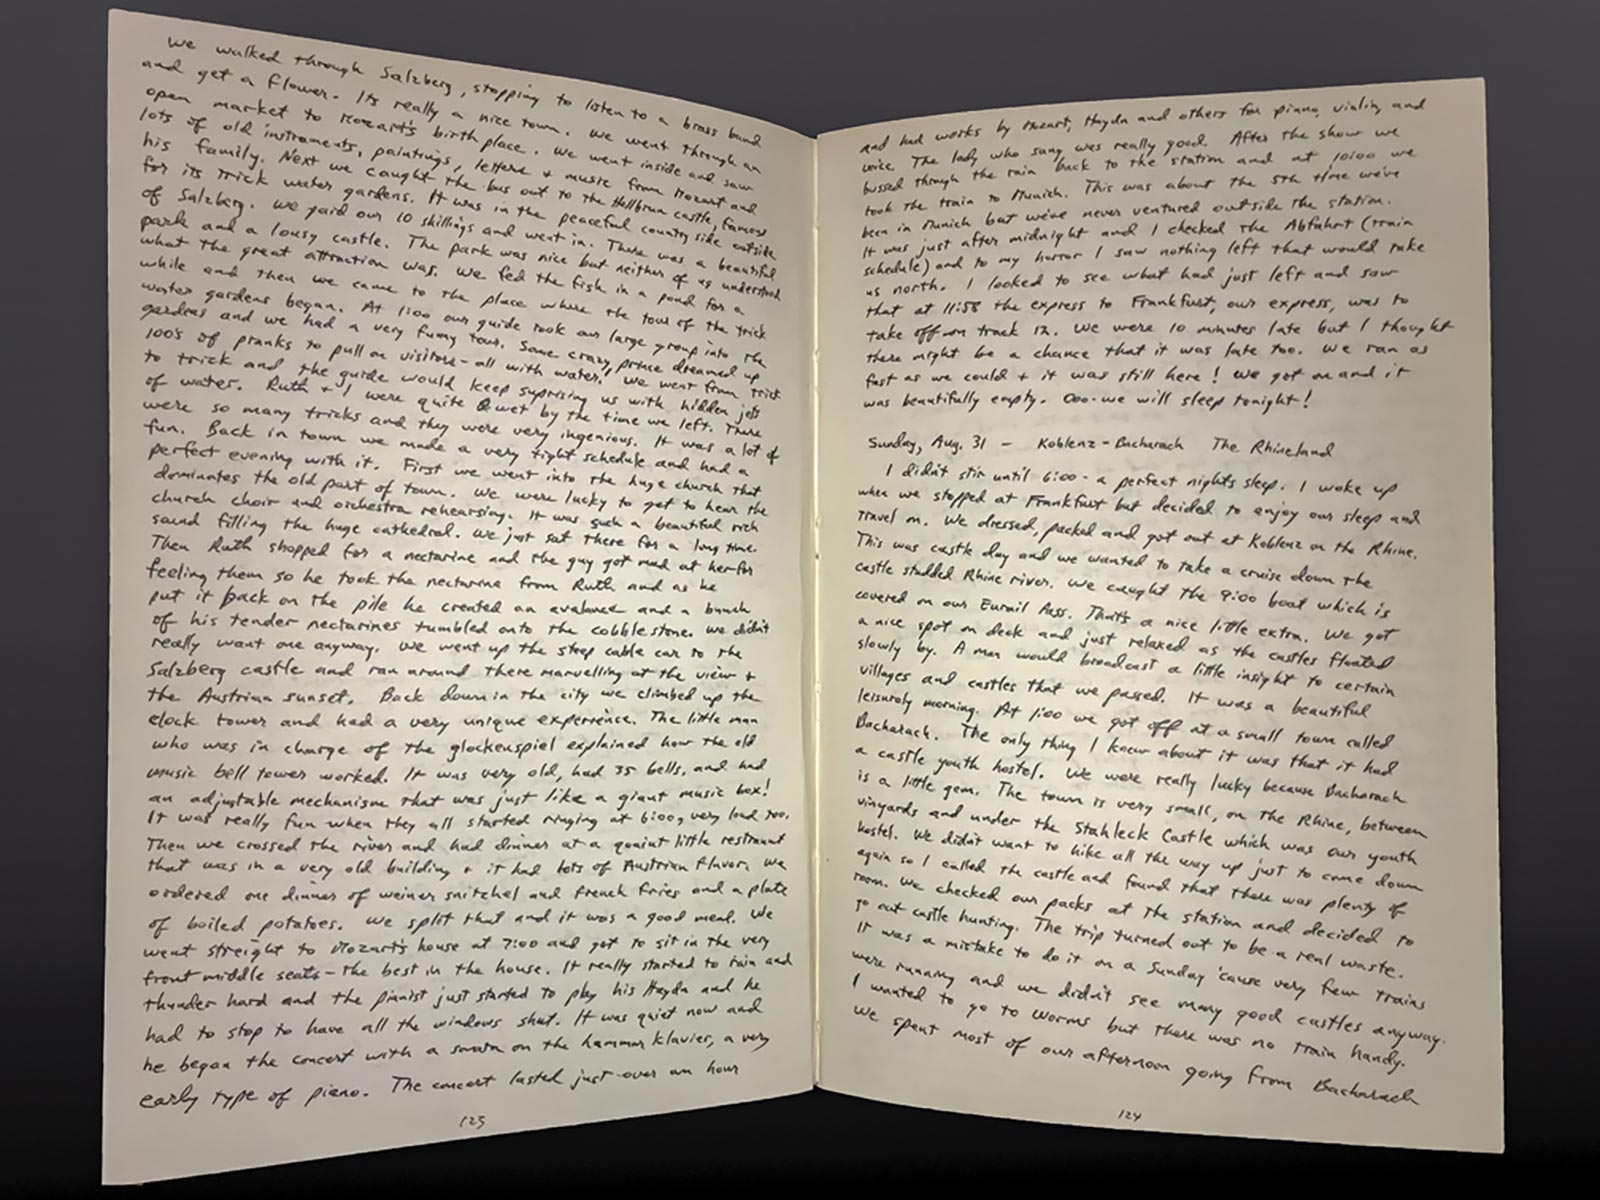 We walked through Salzberg, stopping to listen to a brass band
and get a flower. Its really a nice town. We went through an
open market to Mozart's birthplace. We went inside and saw
lots of old instruments, paintings, letters + music from Mozart and
his family. Next we caught the bus out to the Hellbrun castle, famous
for its trick water gardens. It was in the peaceful country side outside
of Salzberg. We paid our 10 shillings and went in. There was a beautiful
park and a lousy castle. The park was nice but neither of us understood
what the great attraction was. We fed the fish in a pond for a
while and then we came to the place where the tour of the trick
water gardens began. At 1:00 our guide took our large group into the
gardens and we had a very funny tour. Some crazy prince dreamed up
100's of pranks to pull on visitors - all with water. We went from trick
to trick and the guide would keep suprising us with hidden jets
of water. Ruth + I were quite wet by the time we left. There
were so many tricks and they were very ingenious. It was a lot of
fun. Back in town we made a very tight schedule and had a
perfect evening with it. First we went into the huge church that
dominates the old part of town. We were lucky to get to hear the
church choir and orchestra rehearsing. It was such a beautiful rich
sound filling the huge cathedral. We just sat there for a long time.
Then Ruth shopped for a nectarine and the guy got mad at her for
feeling them so he took the nectarine from Ruth and as he
put it back on the pile he created an avalance and a bunch
of his tender nectarines tumbled onto the cobblestone. We didn't
really want one anyway. We went up the steep cable car to the
Salzberg castle and ran around there marvelling at the view +
the Austrian sunset. Back down in the city we climbed up the
clock tower and had a very unique experience. The little man
who was in charge of the glockenspiel explained how the old
music bell tower worked. It was very old, had 35 bells, and had
an adjustable mechanism that was just like a giant music box!
It was really fun when they all started ringing at 6:00, very loud too.
Then we crossed the river and had dinner at a quaint little restraunt
that was in a very old building + it had lots of Austrian flavor. We
ordered one dinner of weiner snitchel and french fries and a plate
of boiled potatoes. We split that and it was a good meal. We
went streight to Mozart's house at 7:00 and got to sit in the very
front middle seats - the best in the house. It really started to rain and
thunder hard and the pianist just started to play his Haydn and he
had to stop to have all the windows shut. It was quiet now and
he began the concert with a sonata on the hammar klavier, a very
early type of piano. The concert lasted just over an hour
123
and had works by Mozart, Haydn and others for piano, violin, and
voice. The lady who sang was really good. After the show we
bussed through the rain back to the station and at 10:00 we
took the train to Munich. This was about the 5th time we've
been in Munich but we've never ventured outside the station.
It was just after midnight and I checked the Abfahrt (train
schedule) and to my horror I saw nothing left that would take
us north. I looked to see what had just left and saw
that at 11:58 the express to Frankfurt, our express, was to
take off on track 12. We were 10 minutes late but I thought
there might be a chance that it was late too. We ran as
fast as we could + it was still here! We got on and it
was beautifully empty. Ooo - we will sleep tonight!
Sunday, Aug. 31 - Koblenz - Bacharach The Rhineland
I didn't stir until 6:00 - a perfect nights sleep. I woke up
when we stopped at Frankfurt but decided to enjoy our sleep and
travel on. We dressed, packed and got out at Koblenz on the Rhine.
This was castle day and we wanted to take a cruise down the
castle studded Rhine river. We caught the 9:00 boat which is
covered on our Eurail Pass. That's a nice little extra. We got
a nice spot on deck and just relaxed as the castles floated
slowly by. A man would broadcast a little insight to certain
villages and castles that we passed. It was a beautiful
leisurely morning. At 1:00 we got off at a small town called
Bacharach. The only thing I knew about it was that it had
a castle youth hostel. We were really lucky because Bacharach
is a little gem. The town is very small, on the Rhine, between
vinyards and under the Stahleck Castle which was our youth
hostel. We didn't want to hike all the way up just to come down
again so I called the castle and found that there was plenty of
room. We checked our packs at the station and decided to
go out castle hunting. The trip turned out to be a real waste.
It was a mistake to do it on a Sunday 'cause very few trains
were running and we didn't see many good castles anyway.
I wanted to go to Worms but there was no train handy.
We spent most of our afternoon going from Bacharach
124